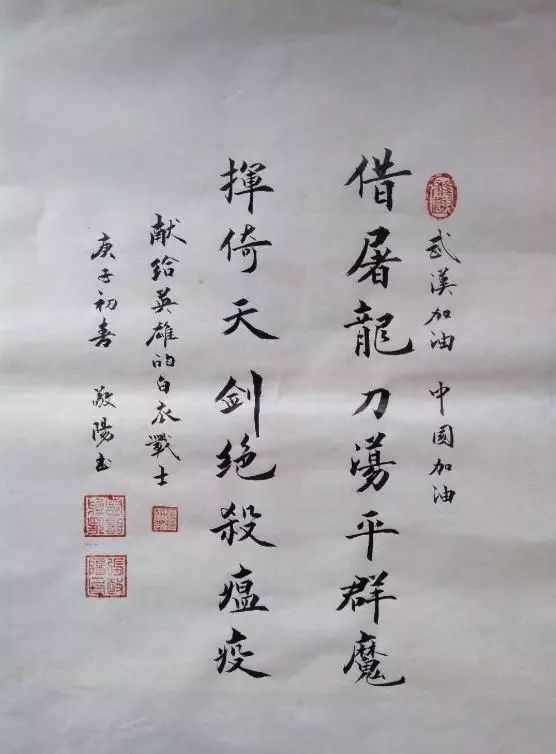 武漢加油 中國加油
借屠龍刀蕩平群魔
揮倚天劍絕殺瘟疫
献给英雄的白衣戰士
庚子初春 敬陽书